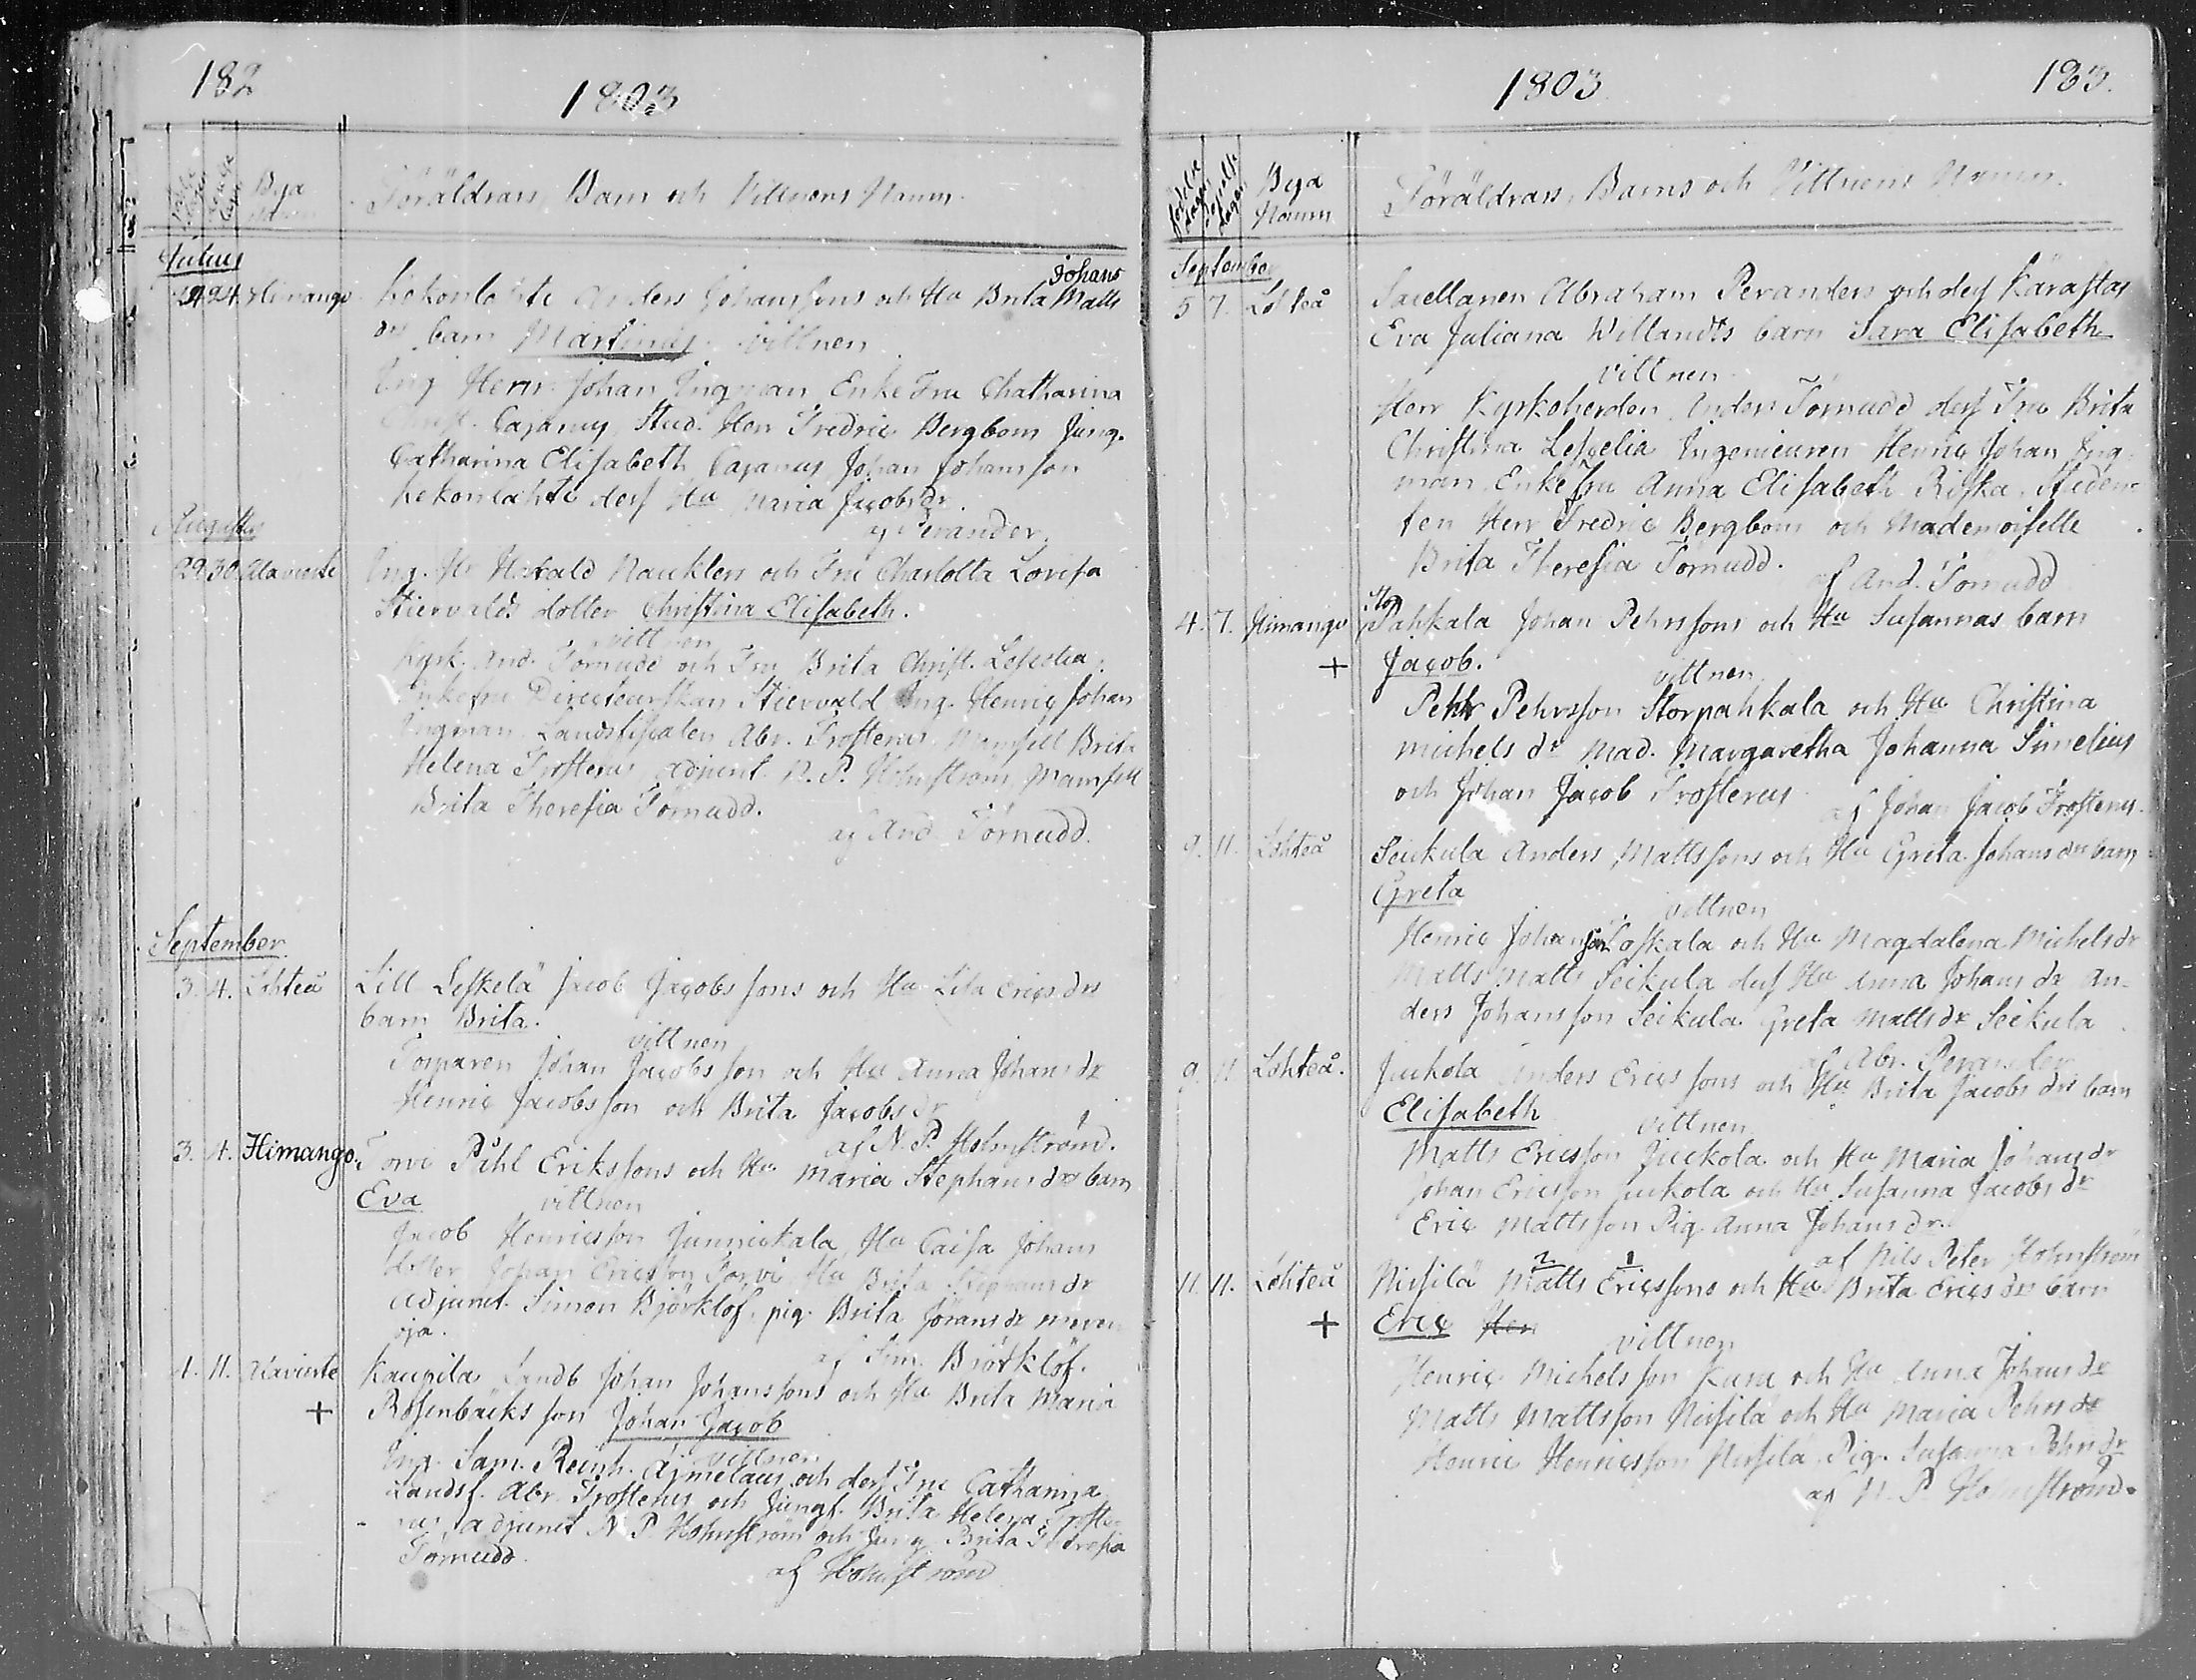 182
1803
Bya
Namn
Föräldrars, Barn och Vittnens Namn.
Julius
24. 24. Himango Kekonlahti Anders Johanssons och Hu Brita Johans Matts
drs barn Martinus. vittnen
Ing Herrn Johan Ingman Enke Fru Chatharina
Christ. Cajanus, Stud. Herr Fredric Bergbom Jung.
Catharina Elisabeth Cajanus Johan Johansson
Kekonlahti dess Hu Maria Jacobs dr.
af Perander.
Augusti
29. 30. Alaviirte Ing. Hr Harald Nauklers och Fru Charlotta Lovisa
Stiervalds dotter Christina Elisabeth.
vittnen
Kyrk. And. Törnudd och Fru Brita Christ. Lescelia,
Enkefru Directeurskan Stiervald Ing. Henric Johan
Ingman Landsfiscalen Abr. Frosterus Mamsell Brita
Helena Frosterus, Adjunct. N. P. Holmström, Mamsell
Brita Theresia Törnudd.
af And. Törnudd.
September
3. 4. Lohteå Lill Leskelä Jacob Jacobs sons och Hu Lisa Erics drs
barn Brita.
vittnen
Torparen Johan Jacobs son och Hu Anna Johans dr
Henric Jacobsson och Brita Jacobs dr
af N. P. Holmström.
3. 4. Himango. Torvi Påhl Erikssons och Hu Maria Stephans drs barn
Eva
vittnen
Jacob Henricsson Junnickala, Hu Caisa Johans
dotter, Johan Ericsson Torvi Hu Brita Stephans dr
Adjunct. Simon Björklöf, pig. Brita Jörans dr
oja.
af Sim. Björklöf.
4. 11. Alaviirte Kaupila Landb Johan Johanssons och Hu Brita Maria
+ Rosenbäcks son Johan Jacob
vittnen
Ing. Sam. Reinh. Ajmelaeus och dess Fru Catharina
Landsf. Abr. Frosterus och Jungf. Brita Helena Froste-
rus, adjunct N. P. Holmström och Jung Brita Theresia
Törnudd.
af Holmström
1803
183.
Födelse dagar
Döpelse dagar
Bya
Namn
Föräldrars, Barns och Vittnens Namn.
September
5 7. Lohteå Sacellanen Abraham Peranders och dess Kärastas
Eva Juliana Willandts barn Sara Elisabeth
vittnen
Herr Kyrkoherden Anders Törnudd dess Fru Brita
Christina Lescelia Ingenieuren Henric Johan Ing-
man, Enke Fru Anna Elisabeth Riska, Studen-
ten Herr Fredric Bergbom och Mademoiselle
Brita Theresia Törnudd.
af And. Törnudd
4. 7. Himango Stor Pahkala Johan Pehrssons och Hu Susannas barn
+ Jacob.
vittnen
Pehr Pehrsson Storpahkala och Hu Christina
Michels dr Mad. Margaretha Johanna Simelius
och Johan Jacob Frosterus
af Johan Jacob Frosterus.
9. 11. Lohteå Seikula Anders Matts sons och Hu Greta Johans drs barn
Greta
vittnen
Henric Johansson Laskala och Hu Magdalena Michels dr
Matts Matts Seikula dess Hu Anna Johans dr An-
ders Johansson Seikula Greta Matts dr Seikula
af Abr. Perander
9. 11 Lohteå. Juckola Anders Erics sons och Hu Brita Jacobs drs barn
Elisabeth
vittnen
Matts Ericsson Juckola och Hu Maria Johans dr
Johan Ericsson Juckola och Hu Susanna Jacobs dr
Eric Mattsson Pig. Anna Johans dr.
af Nils Peter Holmström
2 1
11. 11. Lohteå Nissilä Matts Ericssons och Hu Brita Erics drs barn
+ Eric Hen
vittnen
Henric Michels son och Hu Anna Johans dr
Matts Mattsson Nissilä och Hu Maria Pehrs dr
Henric Henricsson Nissilä Pig. Susanna Pehrs dr
af N. P. Holmström.